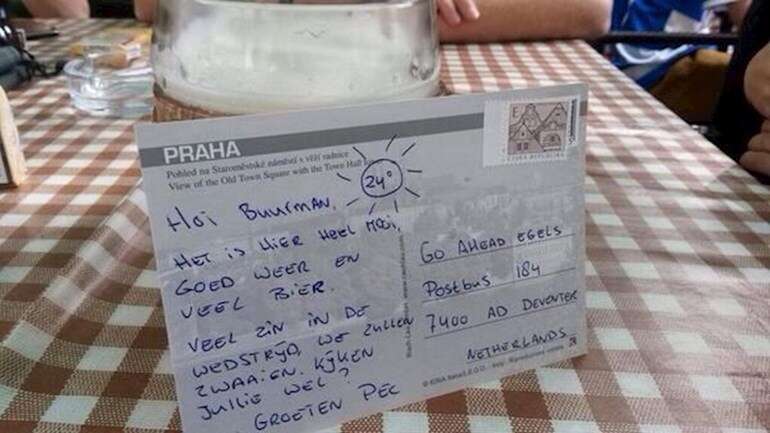 PRAHA
Pohled na Staroměstské náměstí s věží radnice
View of the Old Town Square with the Town Hall
24°
E
ČESKÁ REPUBLIKA
Hoi Buurman,
HET IS HIER HEEL MOOI,
GOED WEER EN
VEEL BIER.
VEEL ZIN IN DE
WEDSTRYD, WE ZULLEN
ZWAAIEN. KYKEN
JULLIE WEL?
GROETEN PEC
GO AHEAD EGELS
Postbus 184
7400 AD DEVENTER
NETHERLANDS